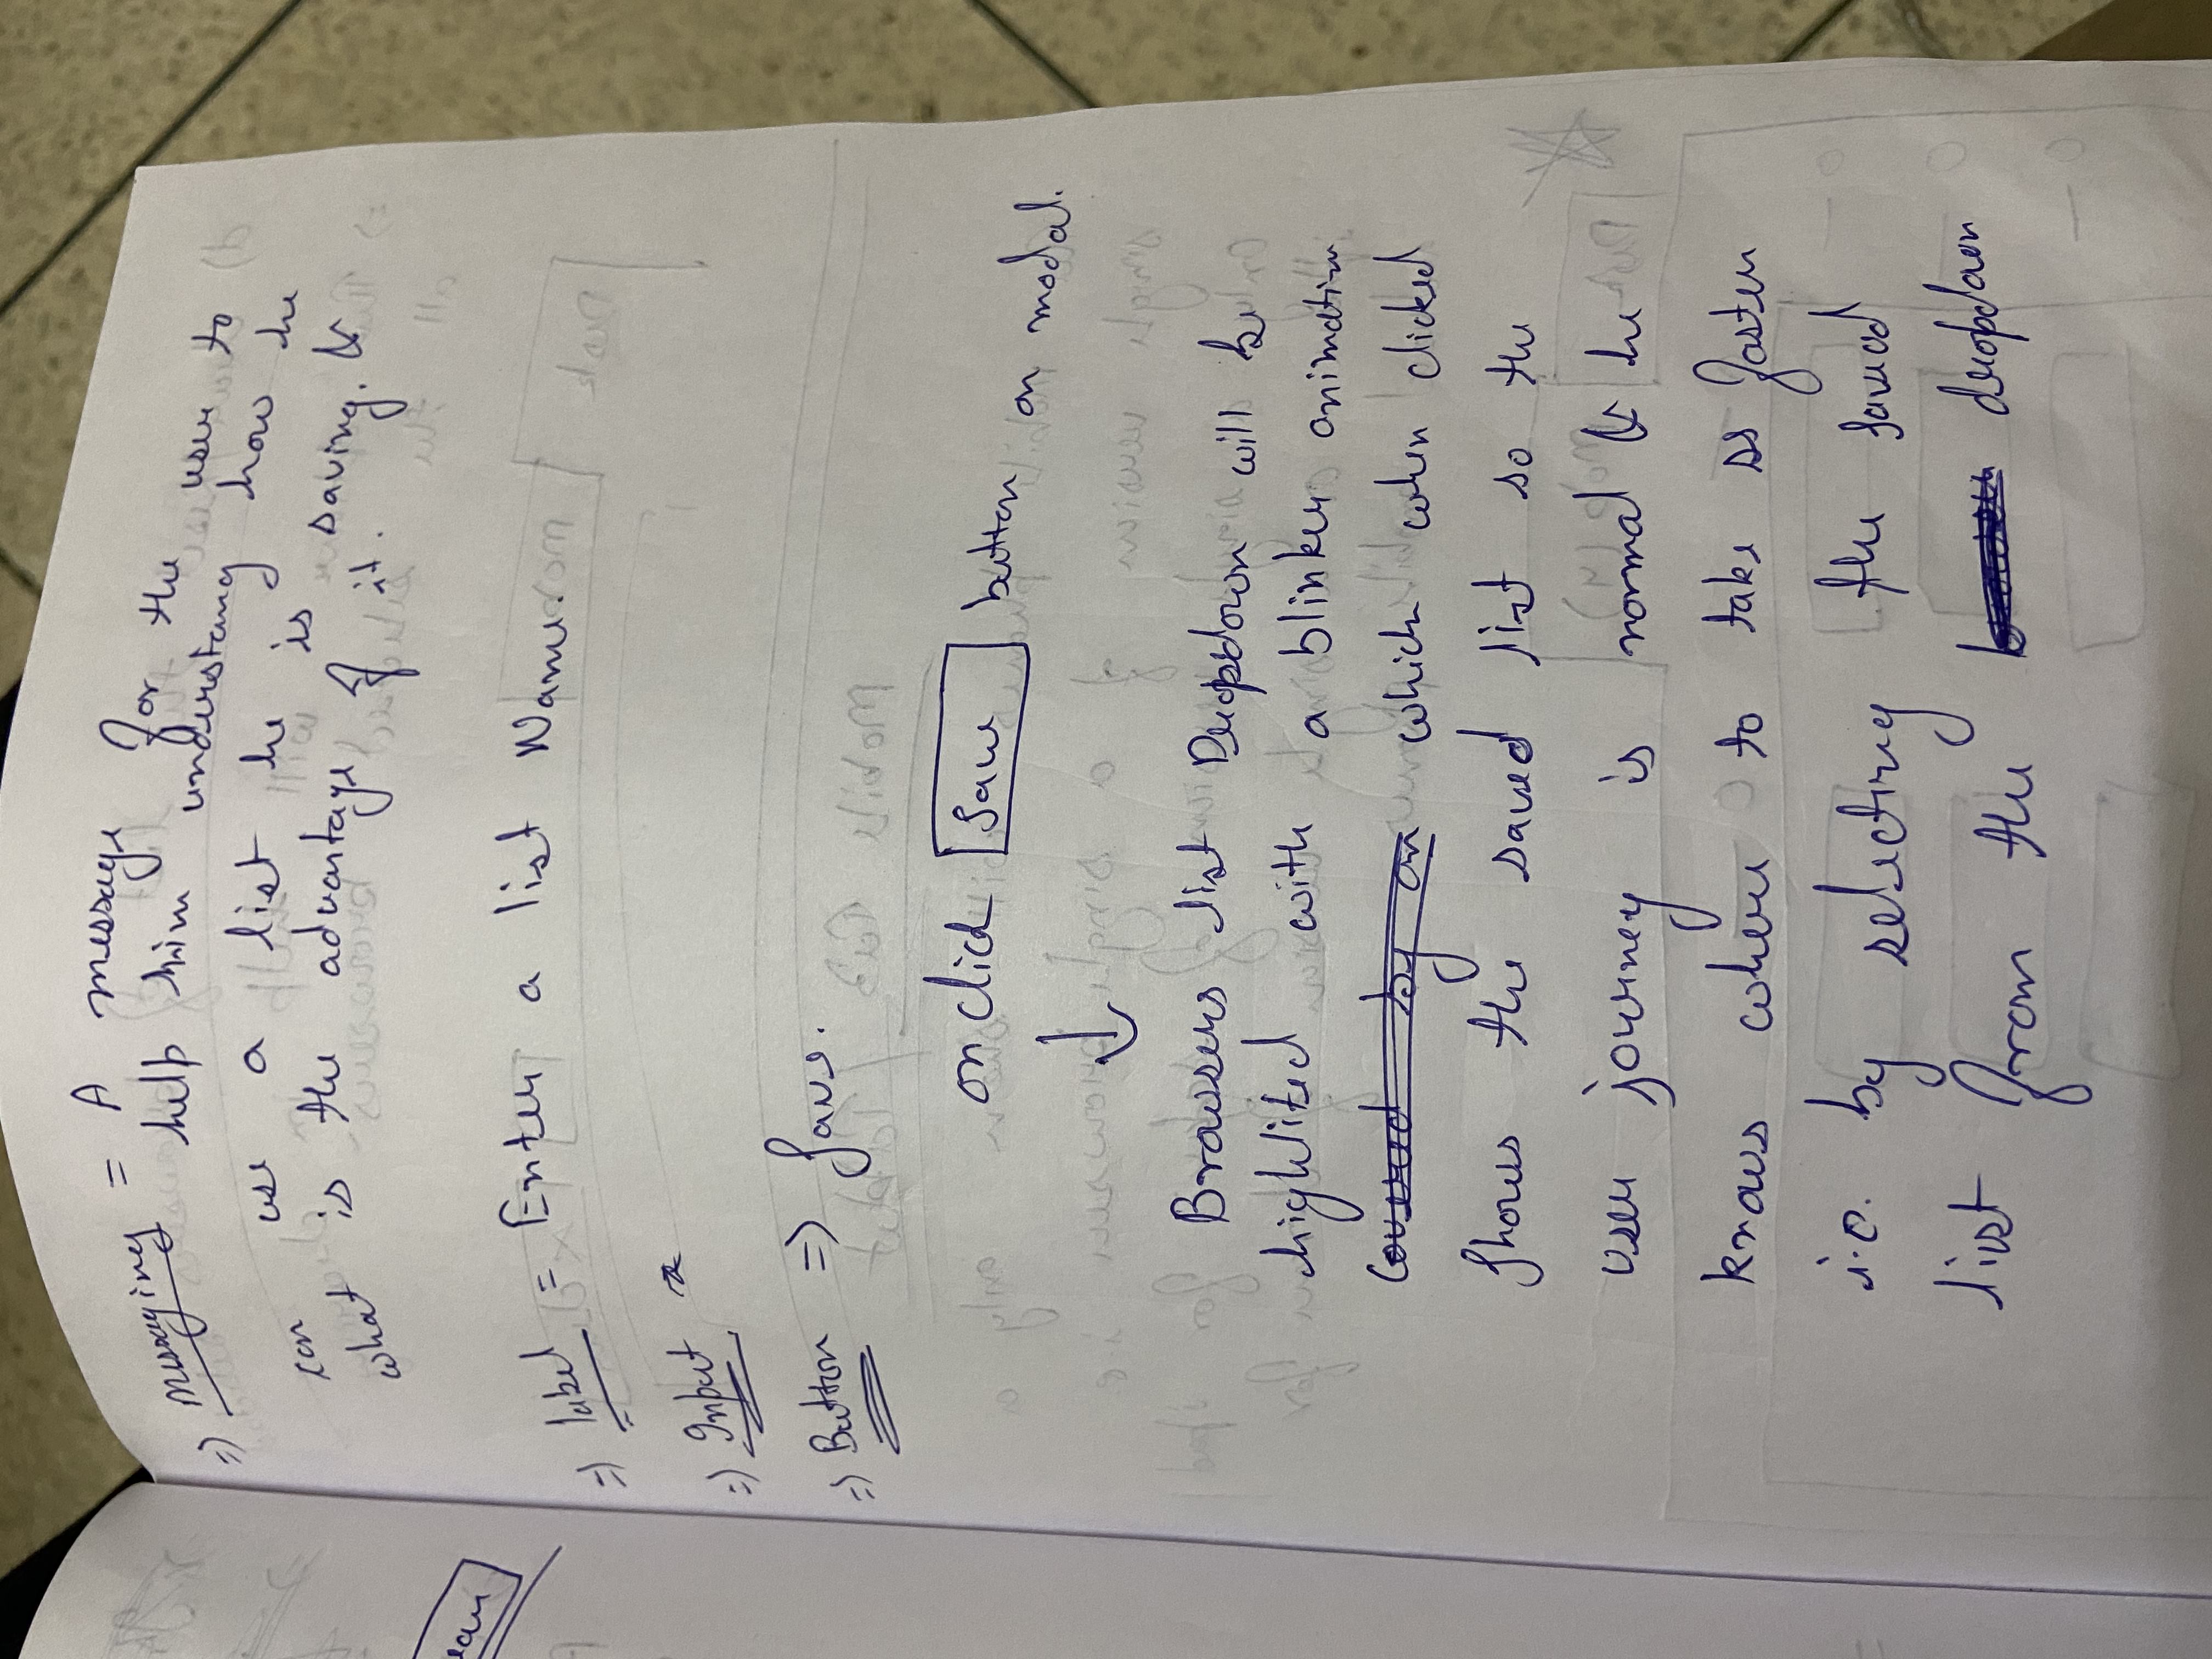 => Messaging = A message for the user to
help him understang how he
can use a list he is saving. &
what is the advantage of it.
=> label = Enter a list Name.
=> Input
=> Button => Save.
on click Save button on modal.
Browsers list Dropdown will be
highlited with a blinker animation
covered by an which when clicked
shows the saved list so the
user journey is normal & he
knows where to take ss faster
i.e. by selecting the saved
list from the browser dropdown